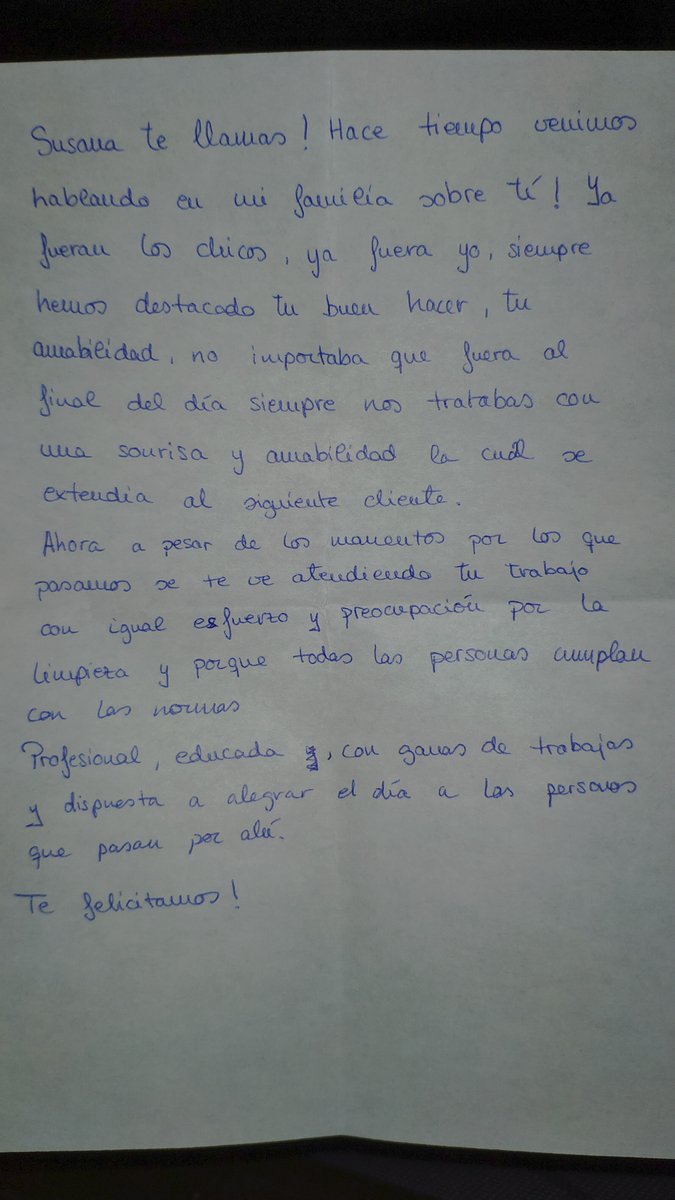 Susana te llamas! Hace tiempo venimos
hablando en mi familia sobre tí! Ya
fueran los chicos, ya fuera yo, siempre
hemos destacado tu buen hacer, tu
amabilidad, no importaba que fuera al
final del día siempre nos tratabas con
una sonrisa y amabilidad la cuál se
extendía al siguiente cliente.
Ahora a pesar de los momentos por los que
pasamos se te ve atendiendo tu trabajo
con igual esfuerzo y preocupación por la
limpieza y porque todas las personas cumplan
con las normas
Profesional, educada, con ganas de trabajar
y dispuesta a alegrar el día a las personas
que pasan por ahí.
Te felicitamos!